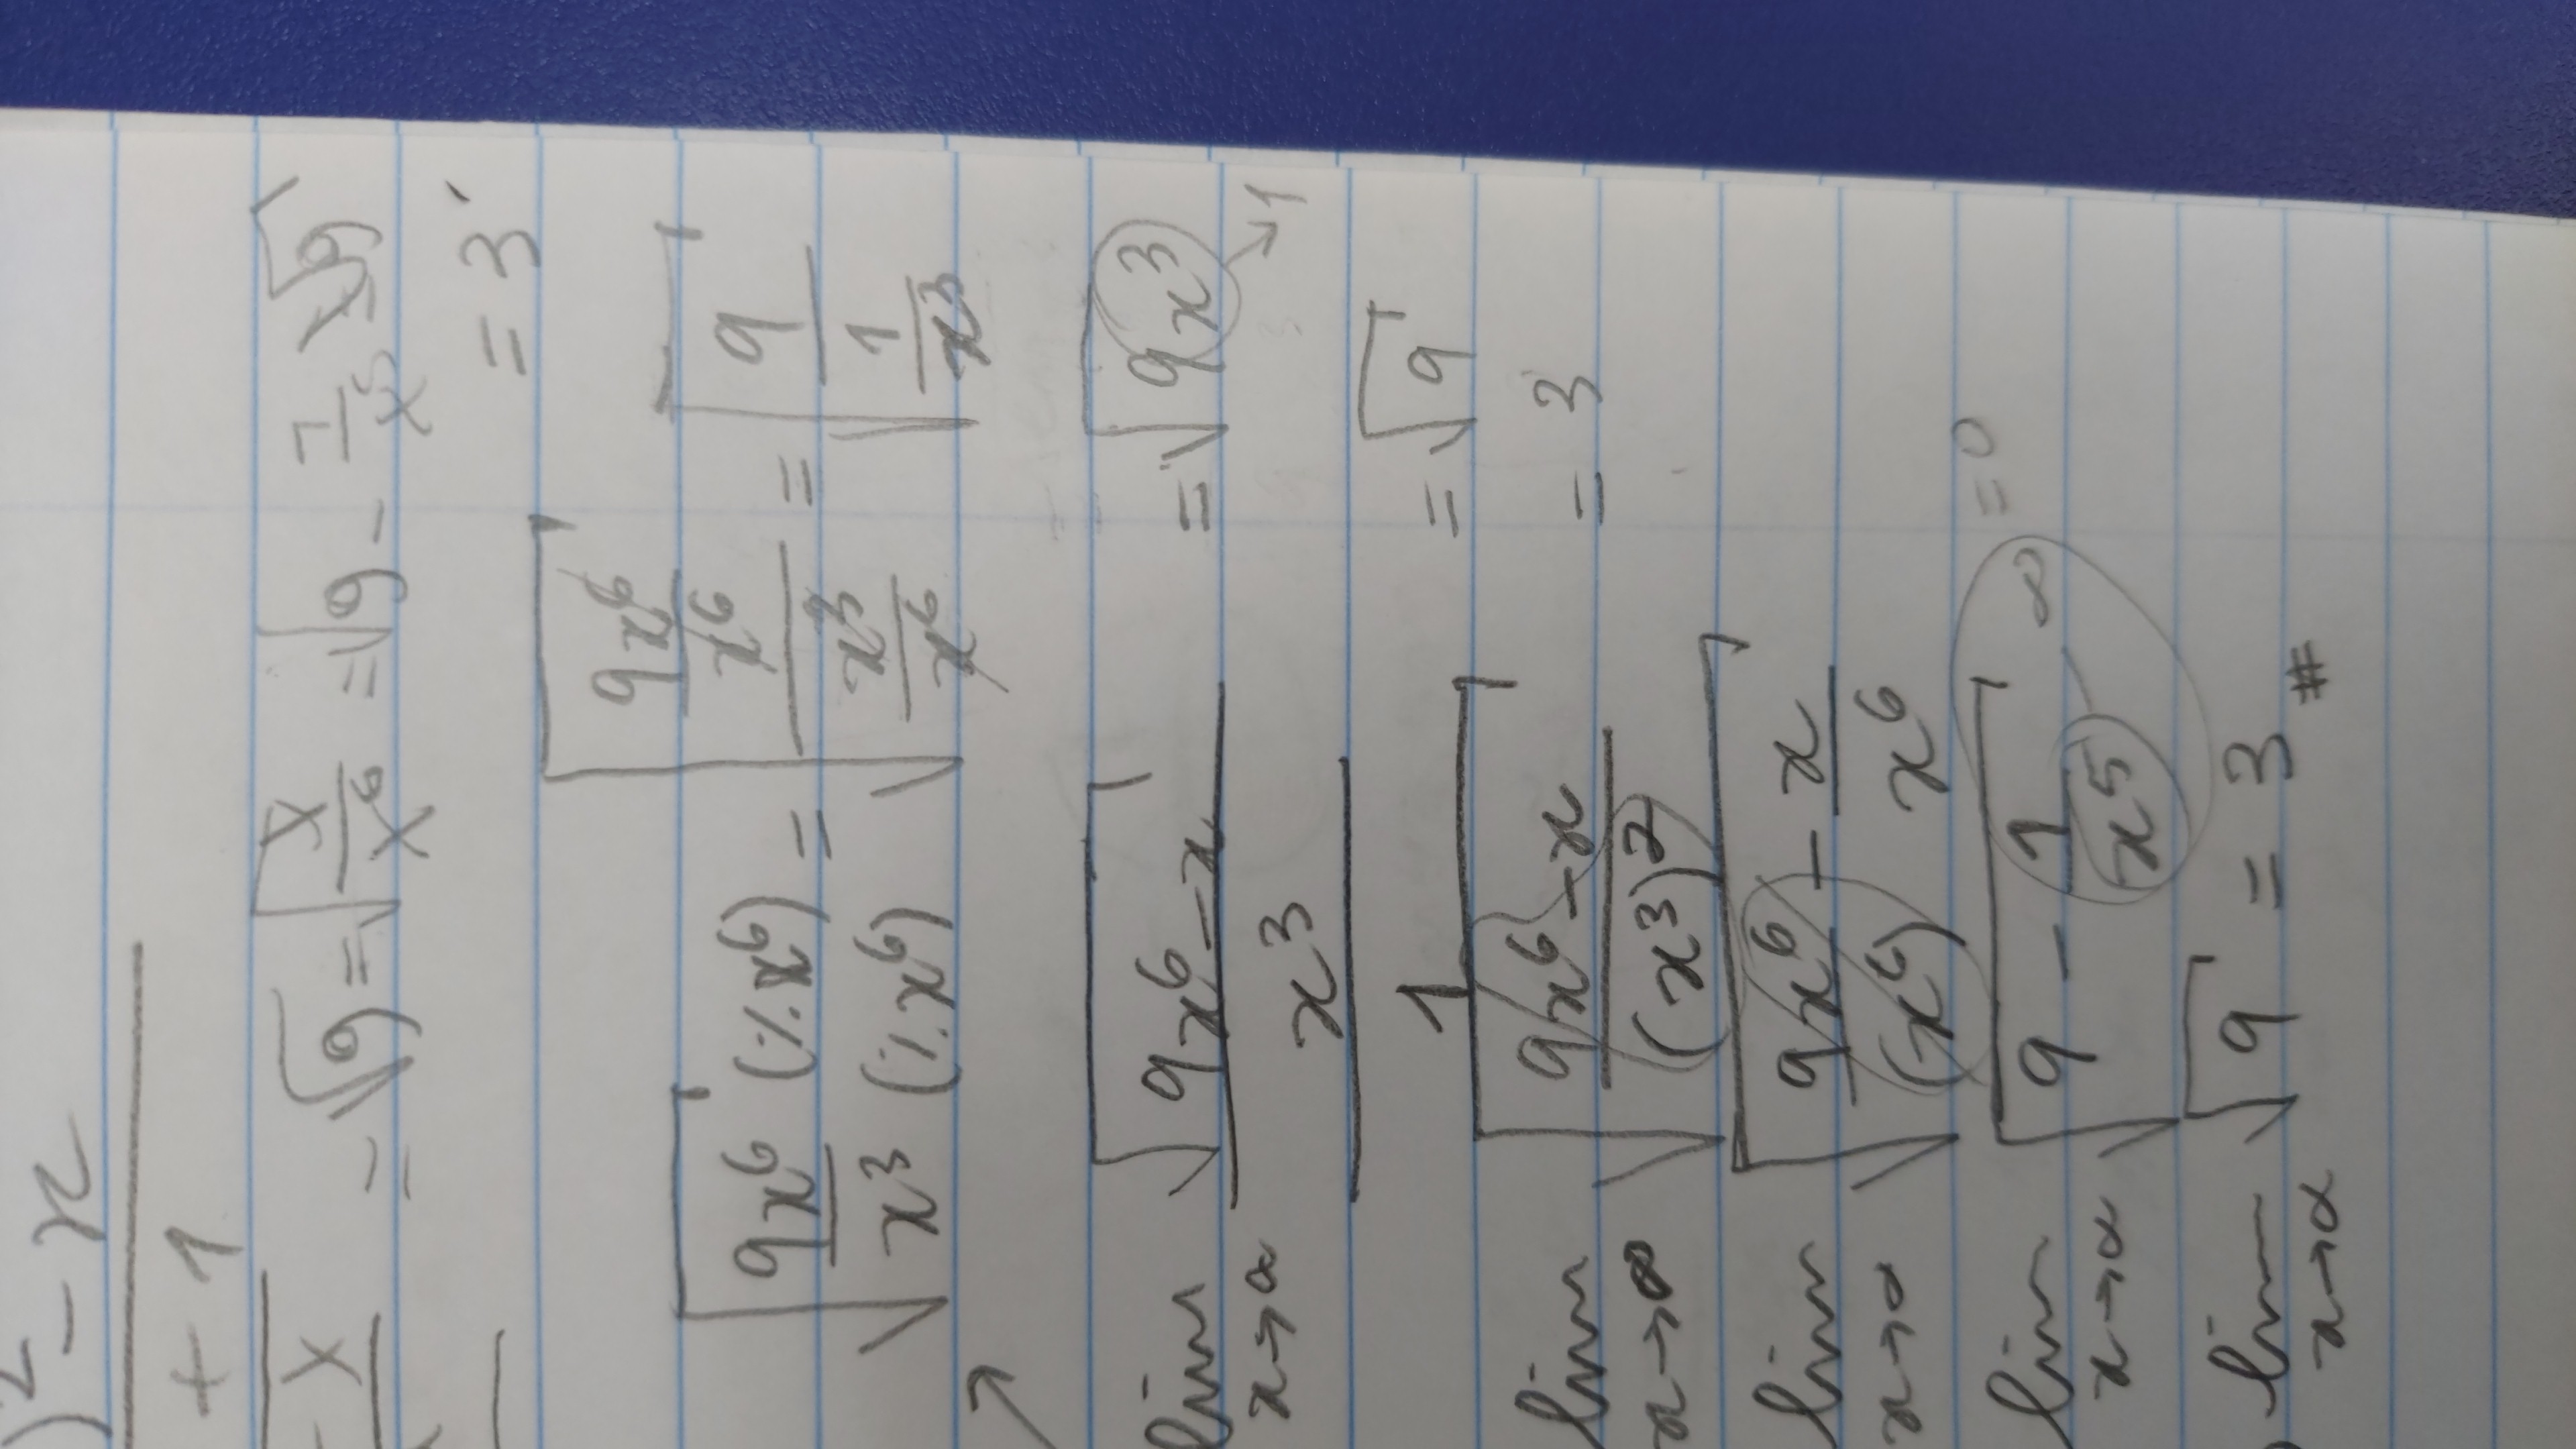 )² - x
+ 1
- x = √9 = √x/x⁶ = √9 - 1/x⁵ = √9
= 3
√9x⁶ (٪x⁶) / x³ (٪x⁶) = √(9x⁶/x⁶)/(x³/x⁶) = √9/(1/x³)
lim x→∞ (√9x⁶ - x / x³) / 1 = √9x³ → 1
= √9
lim x→∞ √(9x⁶ - x)/(x³)² = 3
lim x→∞ √9x⁶/(x⁶) - x/x⁶
lim x→∞ √9 - 1/x⁵ - ∞ = 0
lim x→∞ √9 = 3 #